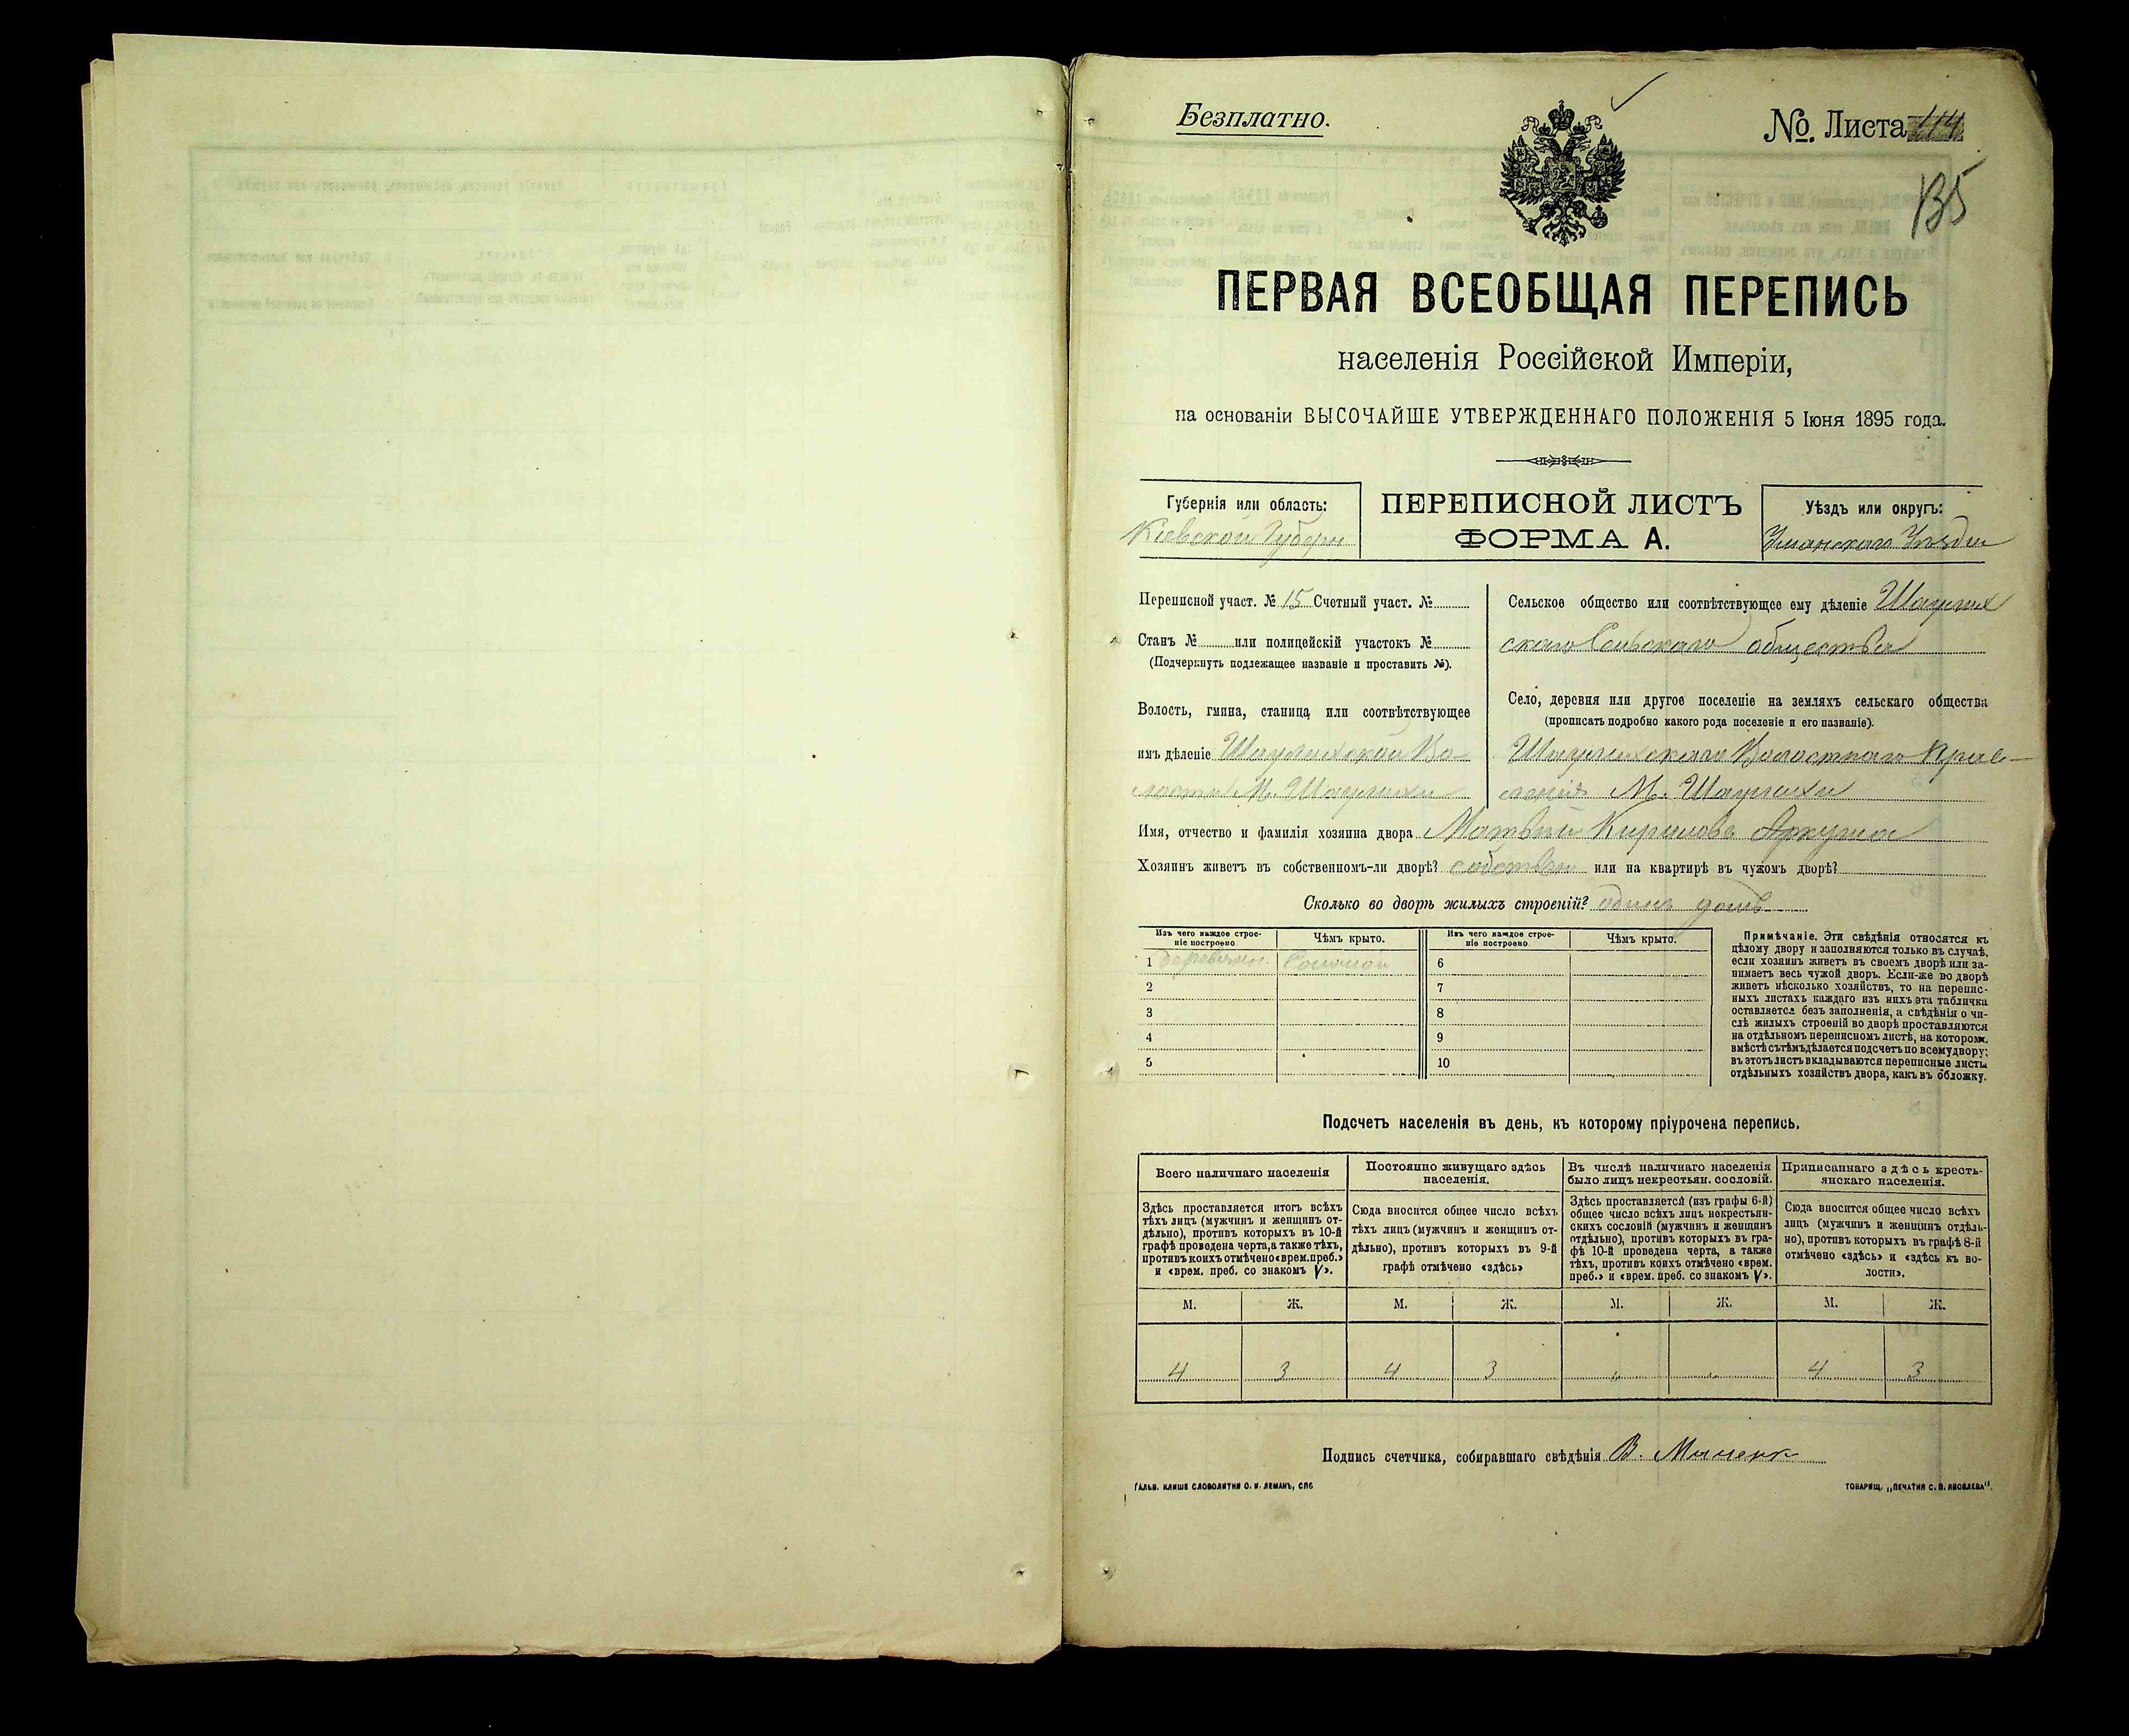 Безплатно.
№ Листа 114
135
ПЕРВАЯ ВСЕОБЩАЯ ПЕРЕПИСЬ
населенія Россійской Имперіи,
на основаніи ВЫСОЧАЙШЕ УТВЕРЖДЕННАГО ПОЛОЖЕНІЯ 5 Іюня 1895 года.
Губернія или область:
Кіевской Губерн
ПЕРЕПИСНОЙ ЛИСТЪ
ФОРМА А.
Уѣздъ или округъ:
Уманскаго Уѣзда
Переписной участ. № 15 Счетный участ. №
Станъ № или полицейскій участокъ №
(Подчеркнуть подлежащее названіе и проставить №).
Волость, гмина, станица или соотвѣтствующее
имъ дѣленіе Шаулихской Во
лости М. Шаулихи
Сельское общество или соотвѣтствующее ему дѣленіе Шаулих
скаго Сельскаго общества
Село, деревня или другое поселеніе на земляхъ сельскаго общества
(прописать подробно какого рода поселеніе и его названіе).
Шаулихскаго Волостнаго Прав-
ленія М. Шаулихи
Имя, отчество и фамилія хозяина двора Матвѣй Кирилова
Хозяинъ живетъ въ собственномъ-ли дворѣ? собствен или на квартирѣ въ чужомъ дворѣ?
Сколько во дворѣ жилыхъ строеній? одинъ домъ
Изъ чего каждое строе-
ніе построено
Чѣмъ крыто.
Изъ чего каждое строе-
ніе построено
Чѣмъ крыто.
1 деревян. Соломой 6
2 7
3 8
4 9
5 10
Примѣчаніе. Эти свѣдѣнія относятся къ
цѣлому двору и заполняются только въ случаѣ,
если хозяинъ живетъ въ своемъ дворѣ или за-
нимаетъ весь чужой дворъ. Если-же во дворѣ
живетъ нѣсколько хозяйствъ, то на перепис-
ныхъ листахъ каждаго изъ нихъ эта табличка
оставляется безъ заполненія, а свѣдѣнія о чи-
слѣ жилыхъ строеній во дворѣ проставляются
на отдѣльномъ переписномъ листѣ, на которомъ
вмѣстѣ съ тѣмъ дѣлается подсчетъ по всему двору;
въ этотъ листъ вкладываются переписные листы
отдѣльныхъ хозяйствъ двора, какъ въ обложку.
Подсчетъ населенія въ день, къ которому пріурочена перепись.
Всего наличнаго населенія
Здѣсь проставляется итогъ всѣхъ
тѣхъ лицъ (мужчинъ и женщинъ от-
дѣльно), противъ которыхъ въ 10-й
графѣ проведена черта, а также тѣхъ,
противъ коихъ отмѣчено «врем. преб.»
и «врем. преб. со знакомъ V».
Постоянно живущаго здѣсь
населенія.
Сюда вносится общее число всѣхъ
тѣхъ лицъ (мужчинъ и женщинъ от-
дѣльно), противъ которыхъ въ 9-й
графѣ отмѣчено «здѣсь»
Въ числѣ наличнаго населенія
было лицъ некрестьян. сословій.
Здѣсь проставляется (изъ графы 6-й)
общее число всѣхъ лицъ некрестьян-
скихъ сословій (мужчинъ и женщинъ
отдѣльно), противъ которыхъ въ гра-
фѣ 10-й проведена черта, а также
тѣхъ, противъ коихъ отмѣчено «врем.
преб.» и «врем. преб. со знакомъ V».
Приписаннаго здѣсь кресть-
янскаго населенія.
Сюда вносится общее число всѣхъ
лицъ (мужчинъ и женщинъ отдѣль-
но), противъ которыхъ въ графѣ 8-й
отмѣчено «здѣсь» и «здѣсь къ во-
лости».
М. Ж. М. Ж. М. Ж. М. Ж.
4 3 4 3 „ „ 4 3
Подпись счетчика, собиравшаго свѣдѣнія В.
ГАЛЬВ. КЛИШЕ СЛОВОЛИТНИ О. И. ЛЕМАНЪ, СПБ
ТОВАРИЩ. „ПЕЧАТНЯ С. П. ЯКОВЛЕВА“.